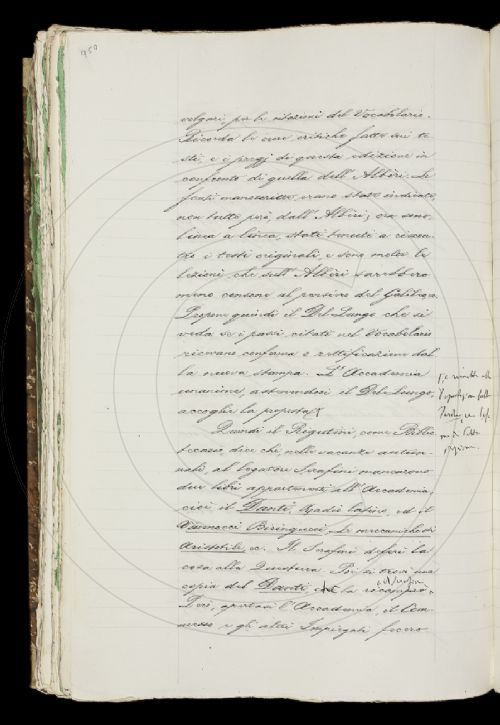 950
volgari, per le citazioni del Vocabolario.
Ricorda le cure critiche fatte sui te
sti, e i pregj di questa edizione in
confronto di quella dell'Albèri. Le
fonti manoscritte erano state indicate,
non tutte però, dall'Albèri; ora sono,
linea a linea, stati tenuti a riscon
tro i testi originali, e sono molte le
lezioni che dall'Albèri sarebbero
meno consone al pensiero del Galileo.
Propone quindi il Del Lungo che si
veda se i passi citati nel Vocabolario
ricevano conferma o rettificazioni dal
la nuova stampa. L'Accademia
unanime, astenendosi il Del Lungo,
accoglie la proposta.
Quindi il Rigutini, come Biblio
tecario, dice che, nelle vacanze autun
nali, al legatore Serafini mancarono
due libri appartenenti all'Accademia,
cioè il Danti, Radio latino, ed il
Vannocci Biringucci, Le meccaniche di
Aristotile, ec. Il Serafini deferì la
cosa alla Questura. Poi si trovò una
copia del Danti e la ricomprò.
Però, grata l'Accademia, il Com
messo e gli altri Impiegati fecero